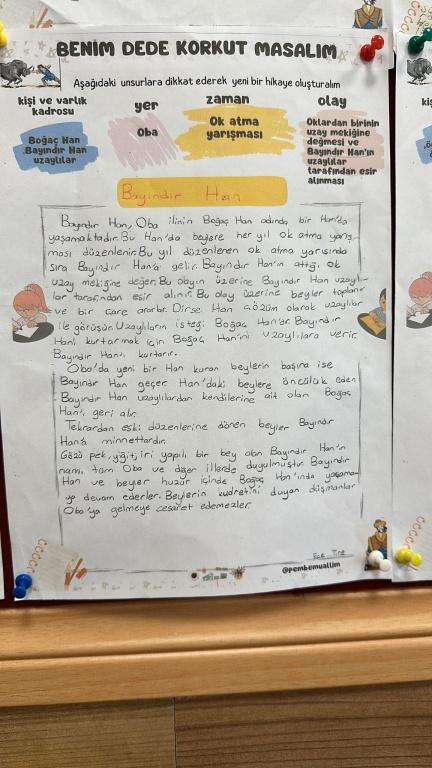 BENİM DEDE KORKUT MASALIM
Aşağıdaki unsurlara dikkat ederek yeni bir hikaye oluşturalım
kişi ve varlık
kadrosu
yer
zaman
olay
Boğaç Han
Bayındır Han
uzaylılar
Oba
Ok atma
yarışması
Oklardan birinin
uzay mekiğine
değmesi ve
Bayındır Han'ın
uzaylılar
tarafından esir
alınması
Bayındır Han
Bayındır Han, Oba ilinin Boğaç Han adında bir Han'da
yaşamaktadır. Bu Han'da beylere her yıl ok atma yarış-
ması düzenlenir. Bu yıl düzenlenen ok atma yarışında
sıra Bayındır Han'a gelir. Bayındır Han'ın attığı ok
uzay mekiğine değer. Bu olayın üzerine Bayındır Han uzaylı-
lar tarafından esir alınır. Bu olay üzerine beyler toplanır
ve bir çare ararlar. Dirse Han çözüm olarak uzaylılar
ile görüşür. Uzaylıların isteği Boğaç Han'dır. Bayındır
Han'ı kurtarmak için Boğaç Han'ını uzaylılara verir.
Bayındır Han'ı kurtarır.
Oba'da yeni bir Han kuran beylerin başına ise
Bayındır Han geçer. Han'daki beylere öncülük eden
Bayındır Han uzaylılardan kendilerine ait olan Boğaç
Han'ı geri alır.
Tekrardan eski düzenlerine dönen beyler Bayındır
Han'a minnettardır.
Gözü pek, yiğit, iri yapılı bir bey olan Bayındır Han'ın
namı tüm Oba ve diğer illerde duyulmuştur. Bayındır
Han ve beyler huzur içinde Boğaç Han'ında yaşama-
ya devam ederler. Beylerin kudretini duyan düşmanlar
Oba'ya gelmeye cesaret edemezler.
Ece
@pembemuallim